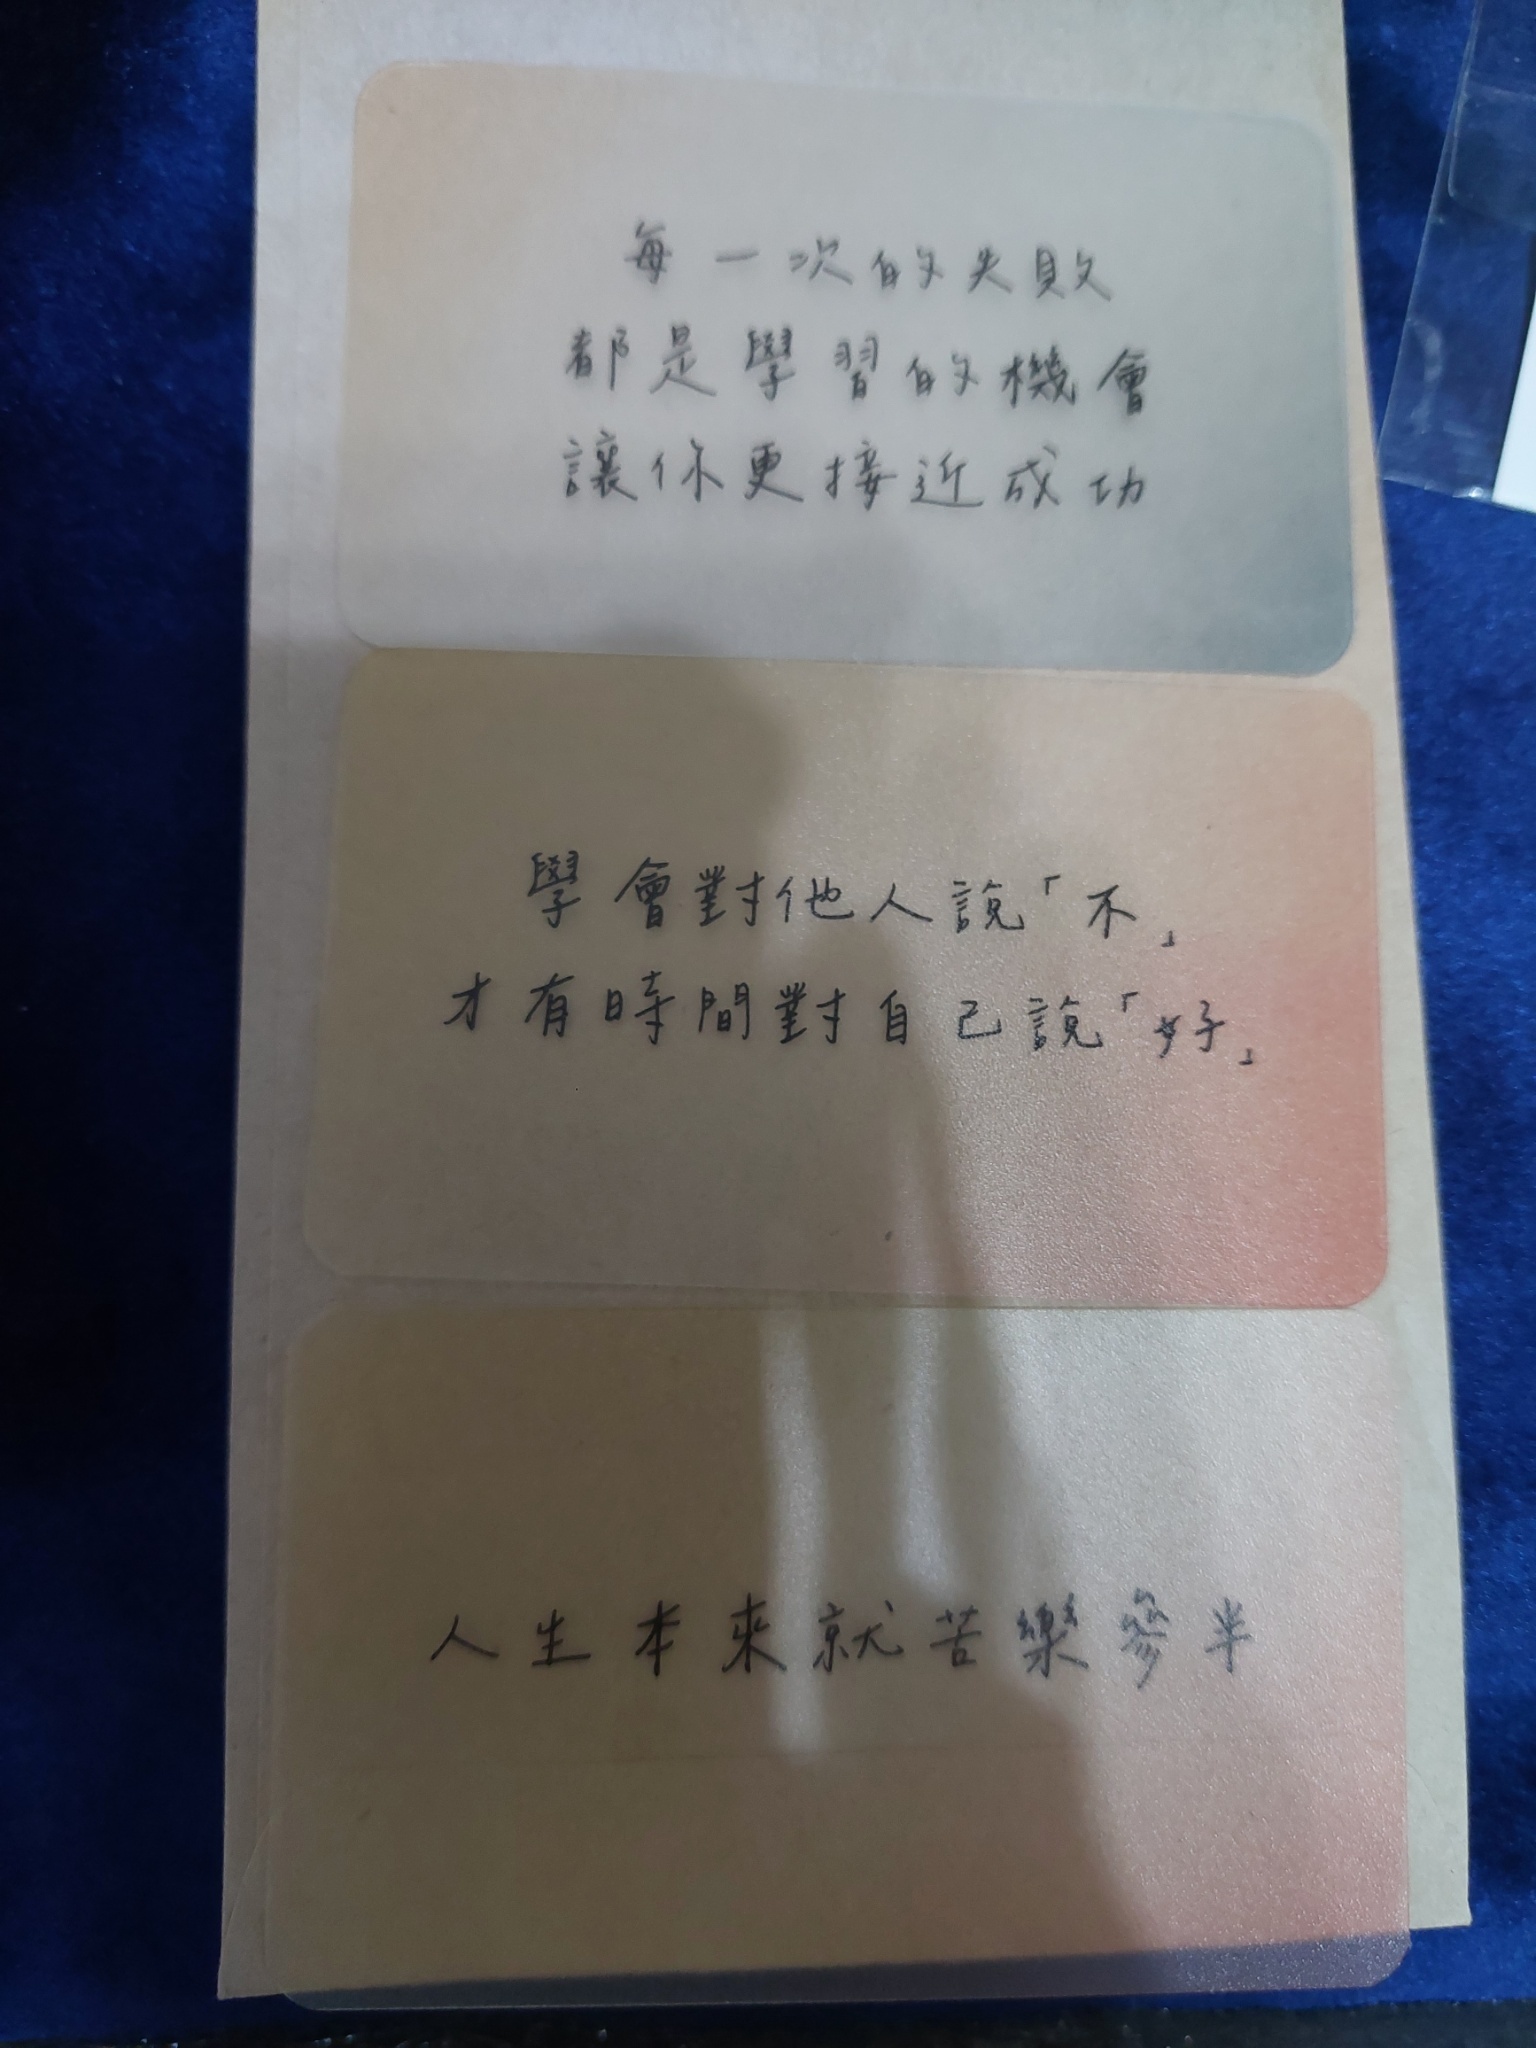 每一次的失敗
都是學習的機會
讓你更接近成功
學會對他人說「不」
才有時間對自己說「好」
人生本來就苦樂參半